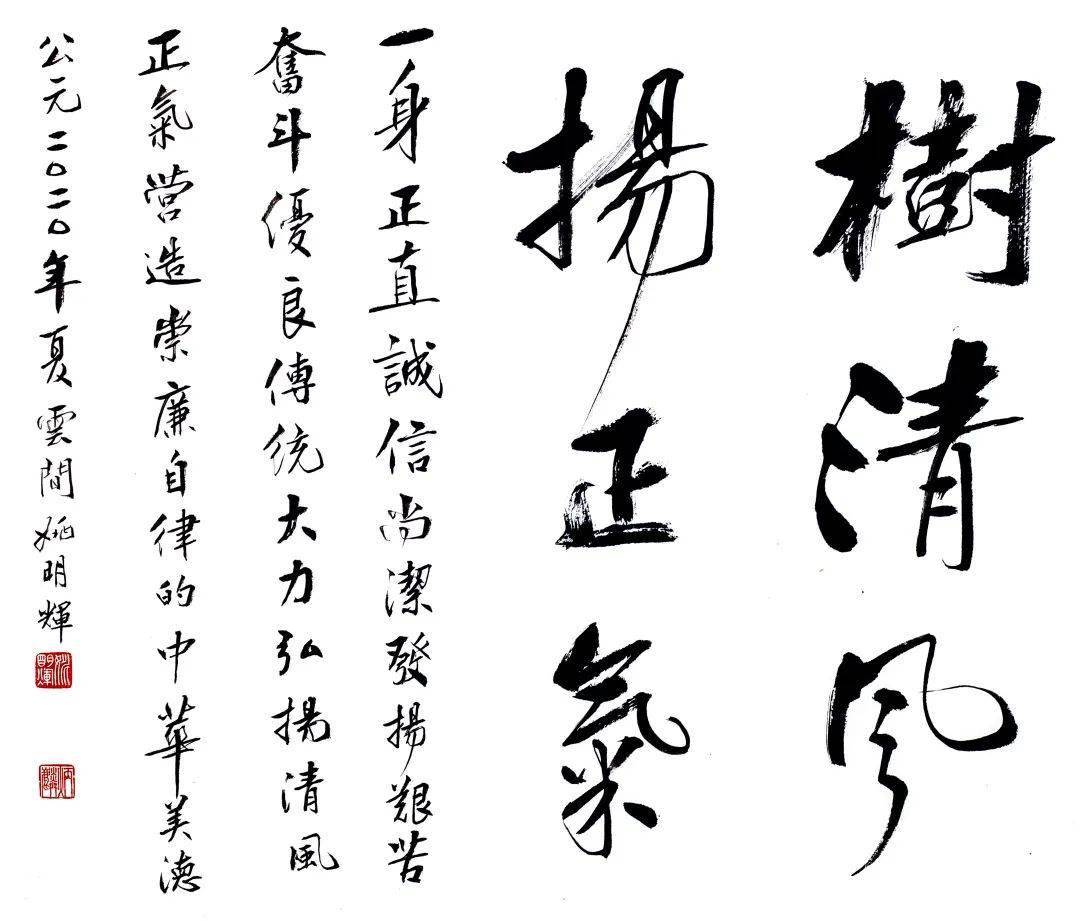 樹清風
揚正氣
一身正直誠信尚潔發揚艱苦
奮斗優良傳統大力弘揚清風
正氣營造崇廉自律的中華美德
公元二〇二〇年夏雲間姚明輝